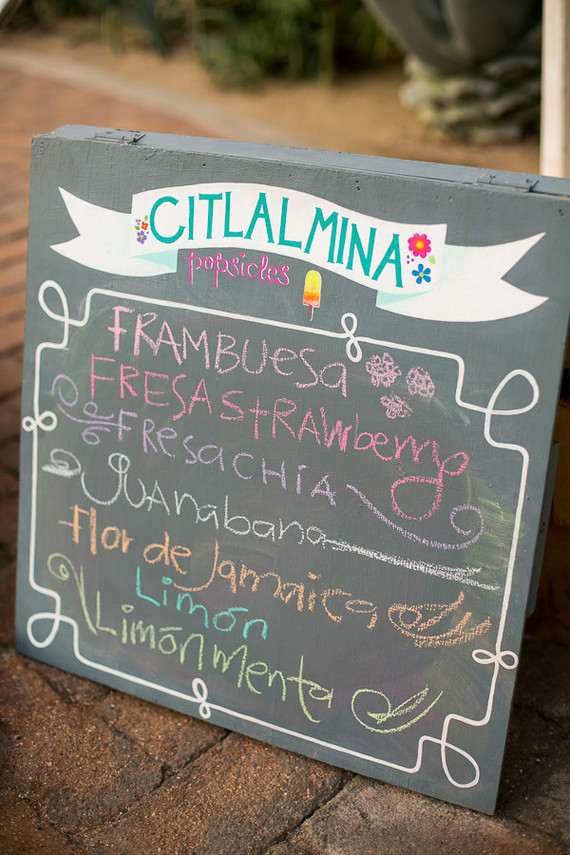 CITLALMINA
popsicles
FRAMBUESA
FRESA STRAWberry
FresaCHIA
Guanabana
Flor de Jamaica
Limón
Limón Menta